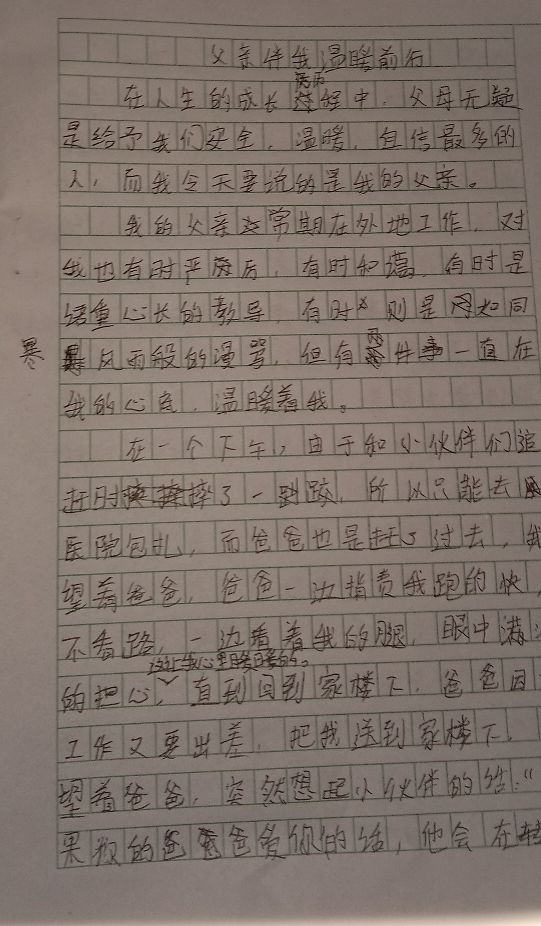 父亲伴我温暖前行
在人生的成长历程中，父母无疑
是给予我们安全、温暖、自信最多的
人，而我今天要说的是我的父亲。
我的父亲常期在外地工作，对
我也有时严厉，有时和蔼，有时是
语重心长的教导，有时则是如同
暴风雨般的漫骂，但有两件事一直在
我的心底，温暖着我。
在一个下午，由于和小伙伴们追
赶时摔了一跤，所以只能去
医院包扎，而爸爸也是赶了过去，我
望着爸爸，爸爸一边指责我跑的快，
不看路，一边看着我的腿，眼中满
这让我心里暖暖的。
的担心，直到回到家楼下，爸爸因
工作又要出差，把我送到家楼下，
望着爸爸，突然想起小伙伴的话：“
果你的爸爸爱你的话，他会在转